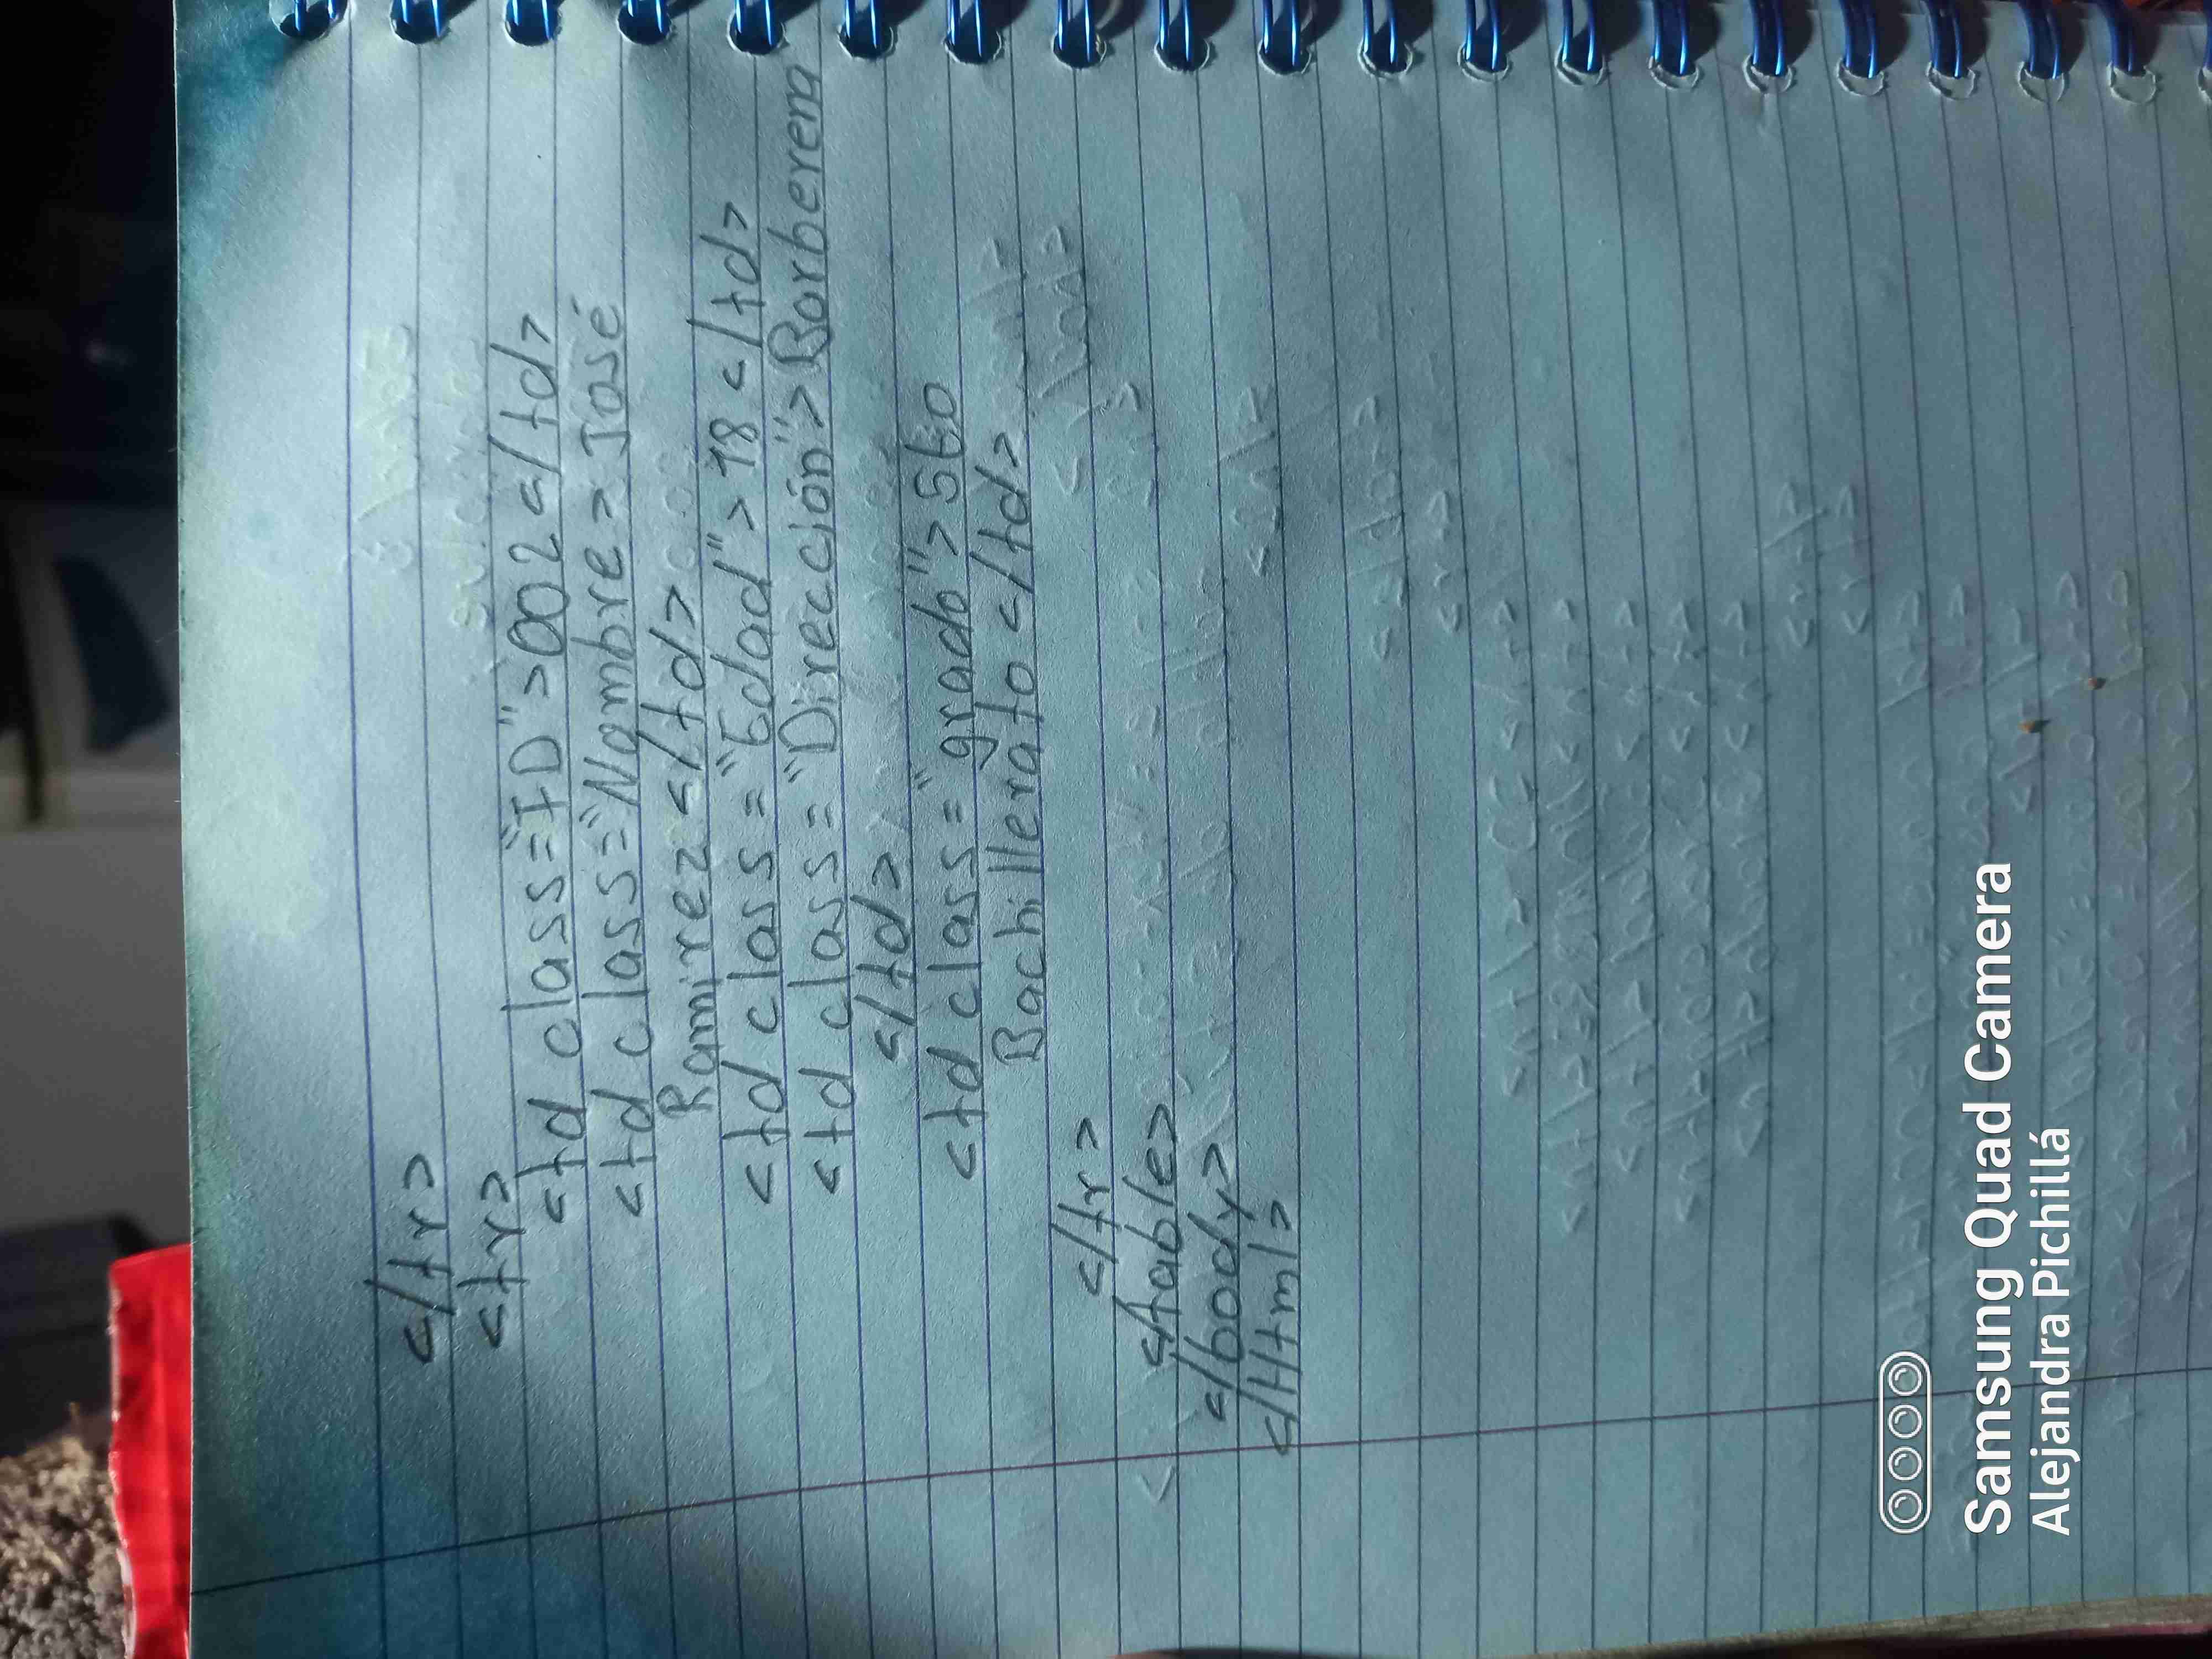 </tr>
<tr>
<td class="ID">002</td>
<td class="Nombre> José
Ramirez</td>
<td class="Edad">18</td>
<td class="Dirección">Borberena
</td>
<td class="grado">5to
Bachillerato</td>
</tr>
</table>
</body>
</Html>
Samsung Quad Camera
Alejandra Pichillá